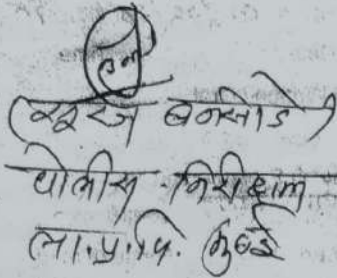 (सुरज बनसोडे)
पोलीस निरीक्षक
ला.प्र.वि. मुंबई